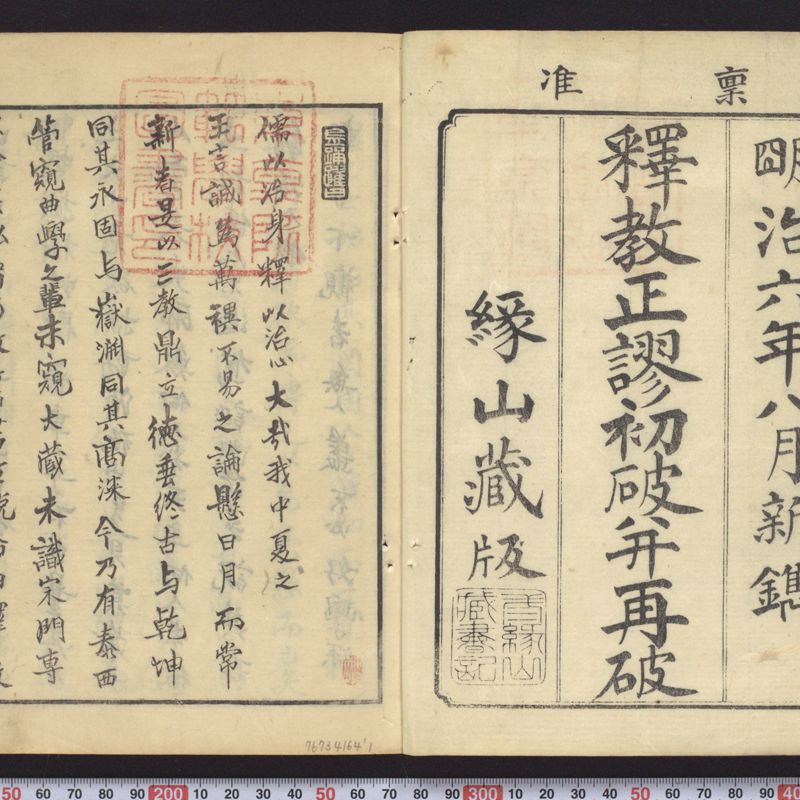 稟准
明治六年八月新鐫
釋教正謬初破并再破
緣山藏版
儒以治身釋以治心大哉我中夏之
王言誠為萬禩不易之論懸日月而常
新者是以三教鼎立德垂終古与乾坤
同其永固与嶽淵同其高深今乃有泰西
管窺曲學之輩未窺大藏未識宗門專
76734164'1
50 60 70 80 90 200 10 20 30 40 50 60 70 80 90 300 10 20 30 40 50 60 70 80 90 40